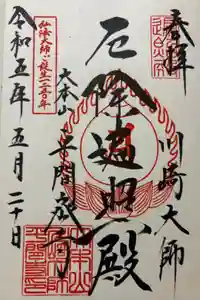 奉拝
川崎大師
厄除遍照殿
大本山
平間寺
弘法大師ご誕生一二五〇年
令和五年五月二十日